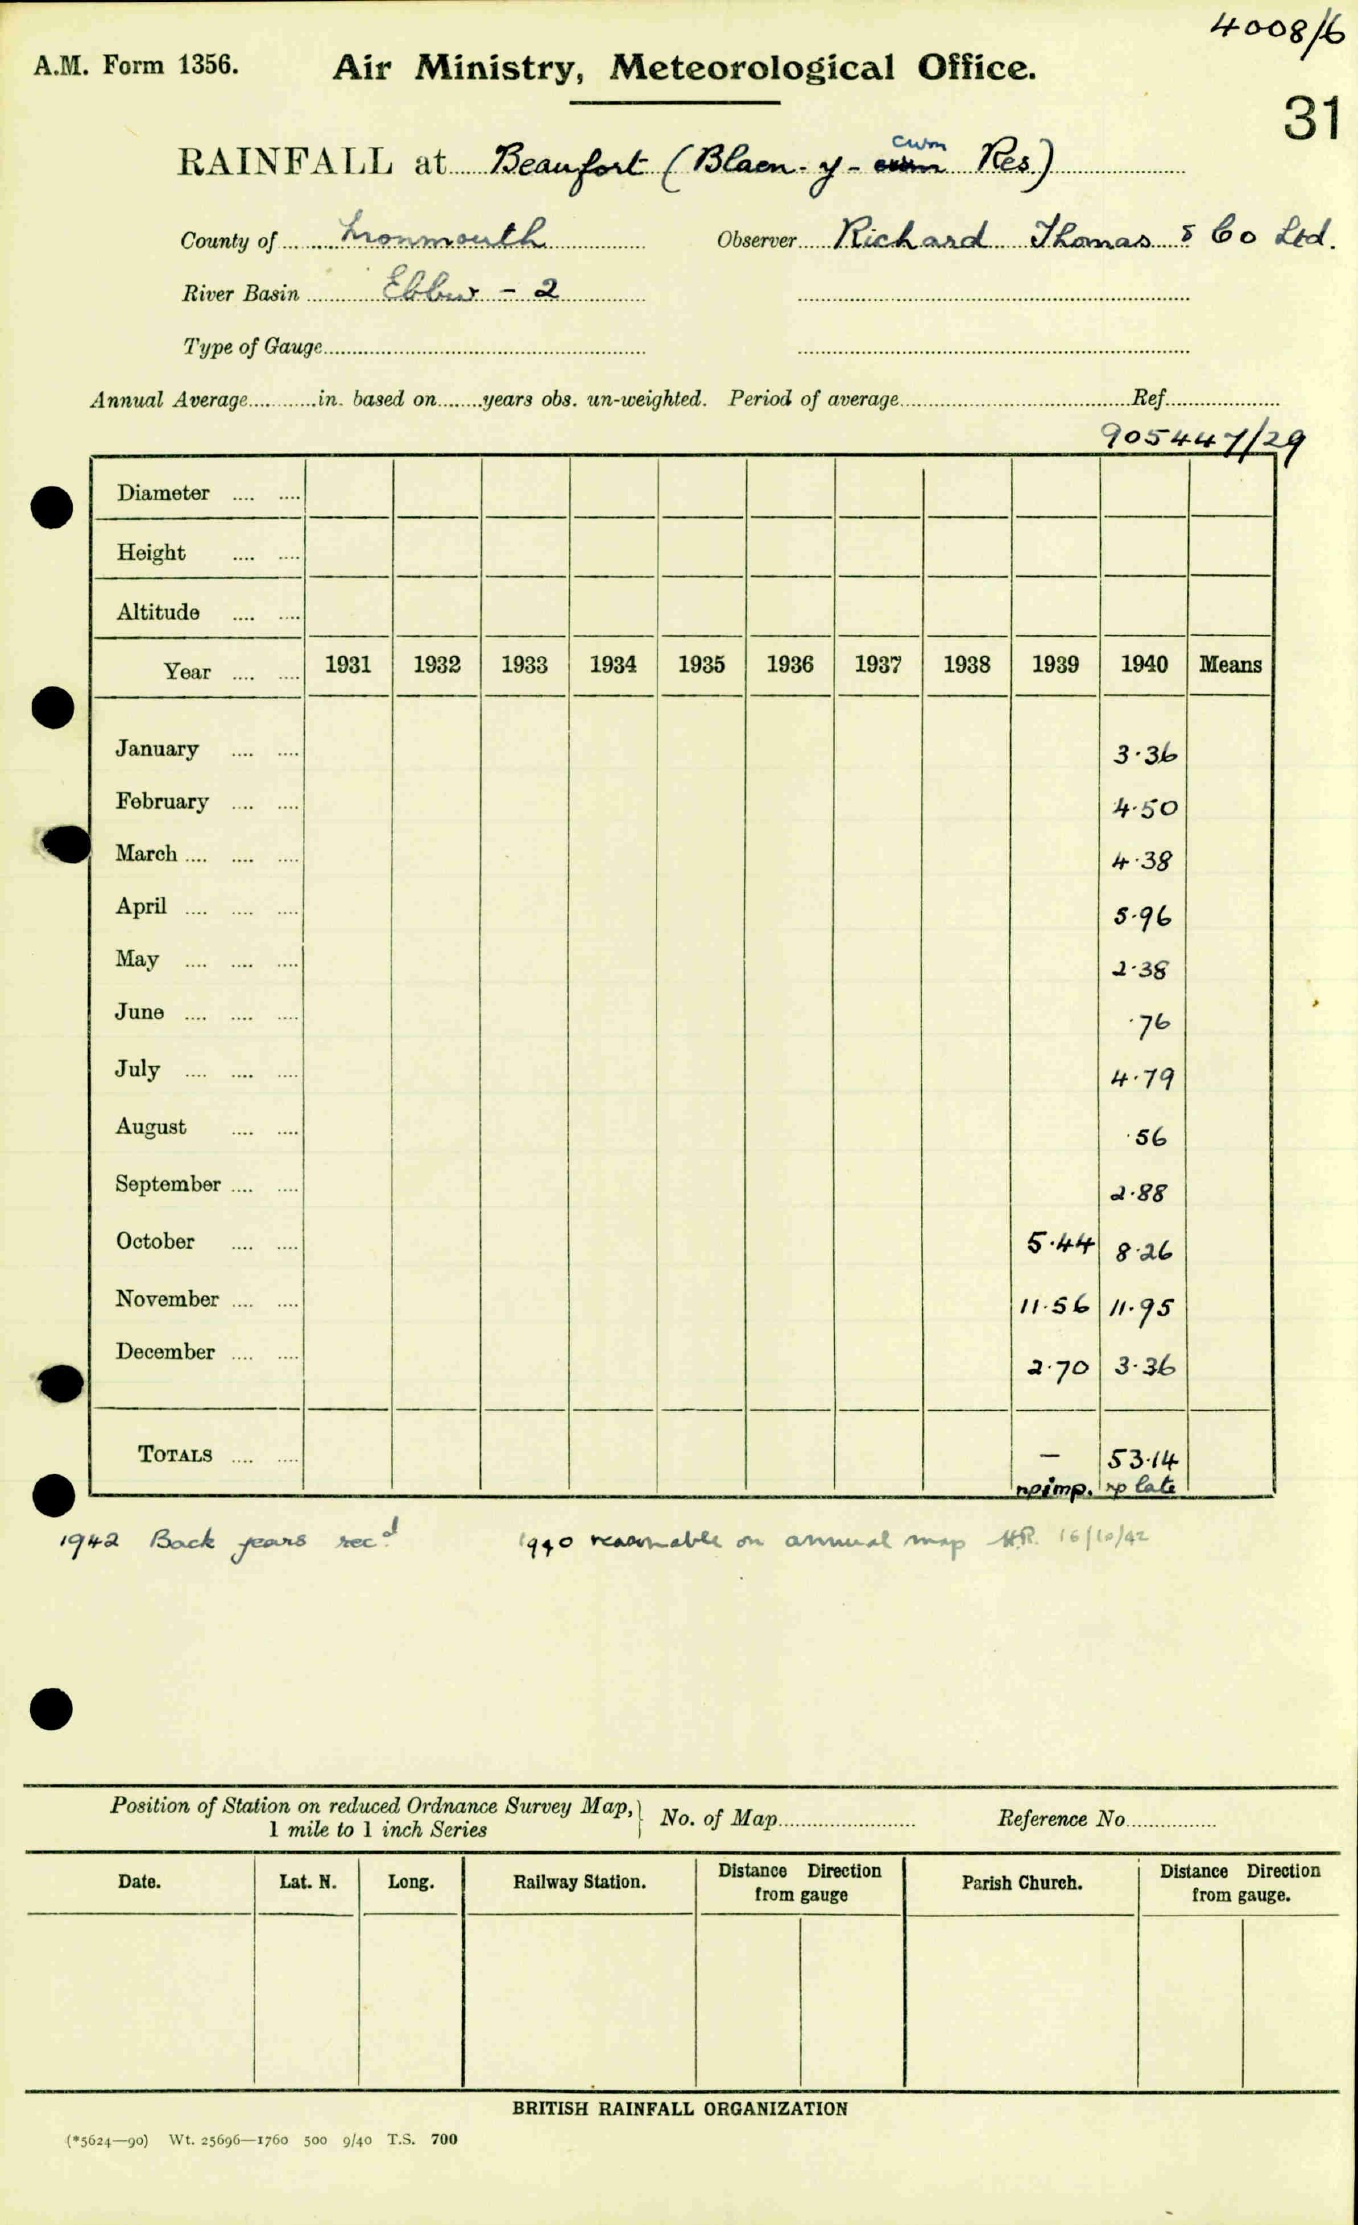 4008/6
A.M. Form 1356. Air Ministry, Meteorological Office.
31
cwm
RAINFALL at Beaufort (Blaen-y- Res)
County of Monmouth Observer Richard Thomas & Co Ltd.
River Basin Ebbw - 2
Type of Gauge
Annual Average in. based on years obs. un-weighted. Period of average Ref
905447/29
Diameter
Height
Altitude
Year 1931 1932 1933 1934 1935 1936 1937 1938 1939 1940 Means
January 3.36
February 4.50
March 4.38
April 5.96
May 2.38
June .76
July 4.79
August .56
September 2.88
October 5.44 8.26
November 11.56 11.95
December 2.70 3.36
TOTALS — 53.14
npimp. rp late
1942 Back years recd 1940 reasonable on annual map H.R. 16/10/42
Position of Station on reduced Ordnance Survey Map, } No. of Map Reference No
1 mile to 1 inch Series
Date. Lat. N. Long. Railway Station. Distance Direction from gauge Parish Church. Distance Direction from gauge.
BRITISH RAINFALL ORGANIZATION
(*5624—90) Wt. 25696—1760 500 9/40 T.S. 700